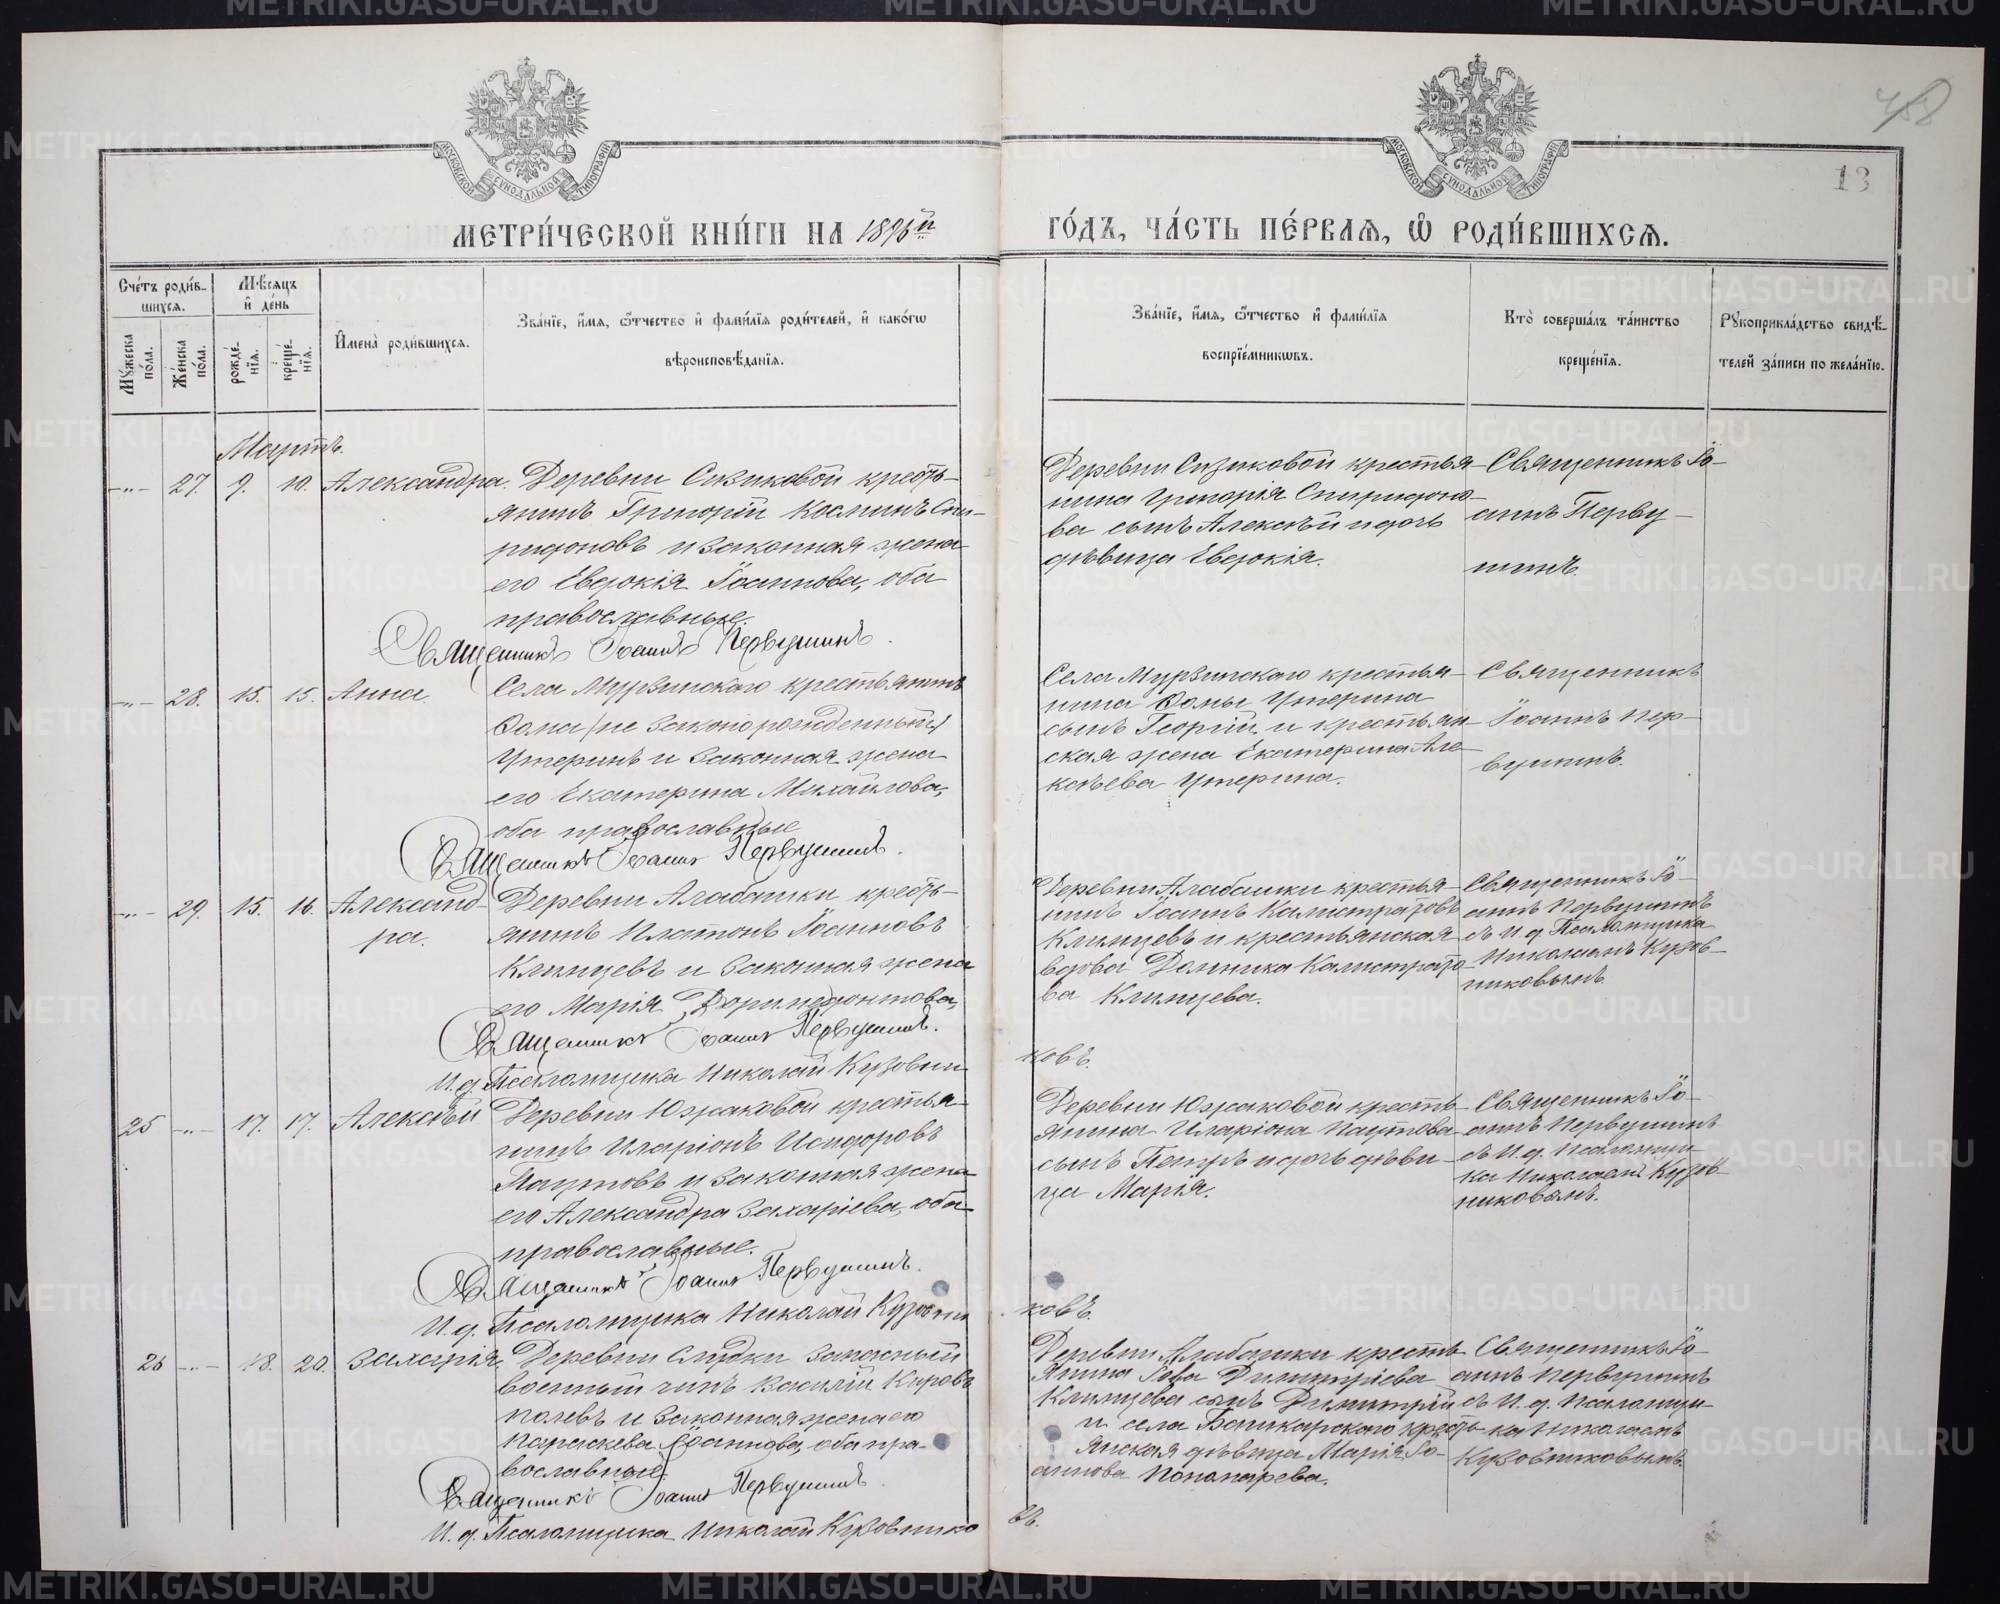 МЕТРИ́ЧЕСКОЙ КНИ́ГИ НА 1896й ГО́ДЪ, ЧА́СТЬ ПЕ́РВАЯ, Ѡ РОДИ́ВШИХСЯ.
13
МОСКОВСКОЙ СѴНОДАЛЬНОЙ ТИПОГРАФІИ
МОСКОВСКОЙ СѴНОДАЛЬНОЙ ТИПОГРАФІИ
Сче́тъ роди́вшихся.
Му́жеска по́ла.
Же́нска по́ла.
Мѣ́сяцъ и де́нь
рожде́нїя.
креще́нїя.
Имена̀ роди́вшихся.
Зва́нїе, и́мя, ѻ́тчество и фами́лїя роди́телей, и како́гѡ
вѣроисповѣ́данїя.
Зва́нїе, и́мя, ѻ́тчество и фами́лїя
воспрїе́мникѡвъ.
Кто̀ соверша́лъ та́инство
креще́нїя.
Рꙋкоприкла́дство свидѣ́-
телей за́писи по жела́нїю.
Мартъ.
-„- 27. 9. 10. Александра.
Деревни Сизиковой кресть-
янинъ Григорій Косминъ Спи-
ридоновъ и законная жена
его Евдокія Іоаннова, оба
православные.
Священникъ Іоаннъ Первушинъ.
Деревни Сизиковой крестья-
нина Григорія Спиридоно-
ва сынъ Алексѣй и дочь
дѣвица Евдокія.
Священникъ Іо-
аннъ Перву-
шинъ.
-„- 28. 15. 15. Анна.
Села Мурзинскаго крестьянинъ
Ѳома (не законорожденный)
Утеринъ и законная жена
его Екатерина Михайлова,
оба православные
Священникъ Іоаннъ Первушинъ.
Села Мурзинскаго крестья-
нина Ѳомы Утерина
сынъ Георгій и крестьян-
ская жена Екатерина Але-
ксѣева Утерина.
Священникъ
Іоаннъ Пер-
вушинъ.
-„- 29. 15. 16. Александ-
ра.
Деревни Алабашки кресть-
янинъ Платонъ Іоанновъ
Климцевъ и законная жена
его Марія Доримедонтова,
Священникъ Іоаннъ Первушинъ.
И. д. Псаломщика Николай Кузовни-
ковъ.
Деревни Алабашки крестья-
нинъ Іоаннъ Калистратовъ
Климцевъ и крестьянская
вдова Домника Калистрато-
ва Климцева.
Священникъ Іо-
аннъ Первушинъ
съ И. д. Псаломщика
Николаемъ Кузов-
никовымъ.
25 -„- 17. 17. Алексѣй
Деревни Южаковой крестья-
нинъ Иларіонъ Исидоровъ
Паутовъ и законная жена
его Александра Захаріева, оба
православные.
Священникъ Іоаннъ Первушинъ.
И. д. Псаломщика Николай Кузовни
ковъ.
Деревни Южаковой кресть-
янина Иларіона Паутова
сынъ Петръ и дочь дѣви-
ца Марія.
Священникъ Іо-
аннъ Первушинъ
съ И. д. Псаломщи-
ка Николаемъ Кузов-
никовымъ.
26 -„- 18. 20. Захарія.
Деревни Слудки запасный
военный чинъ Василій Кировъ
и законная жена его
Параскева Іоаннова, оба пра-
вославные.
Священникъ Іоаннъ Первушинъ.
И. д. Псаломщика Николай Кузовнико
въ.
Деревни Алабашки кресть-
янина Іова Димитріева
Климцева сынъ Димитрій
и села Башкарскаго кресть-
янская дѣвица Марія Іо-
аннова Пономарева.
Священникъ Іо-
аннъ Первушинъ
съ И. д. Псаломщи-
ка Николаемъ
Кузовниковымъ.